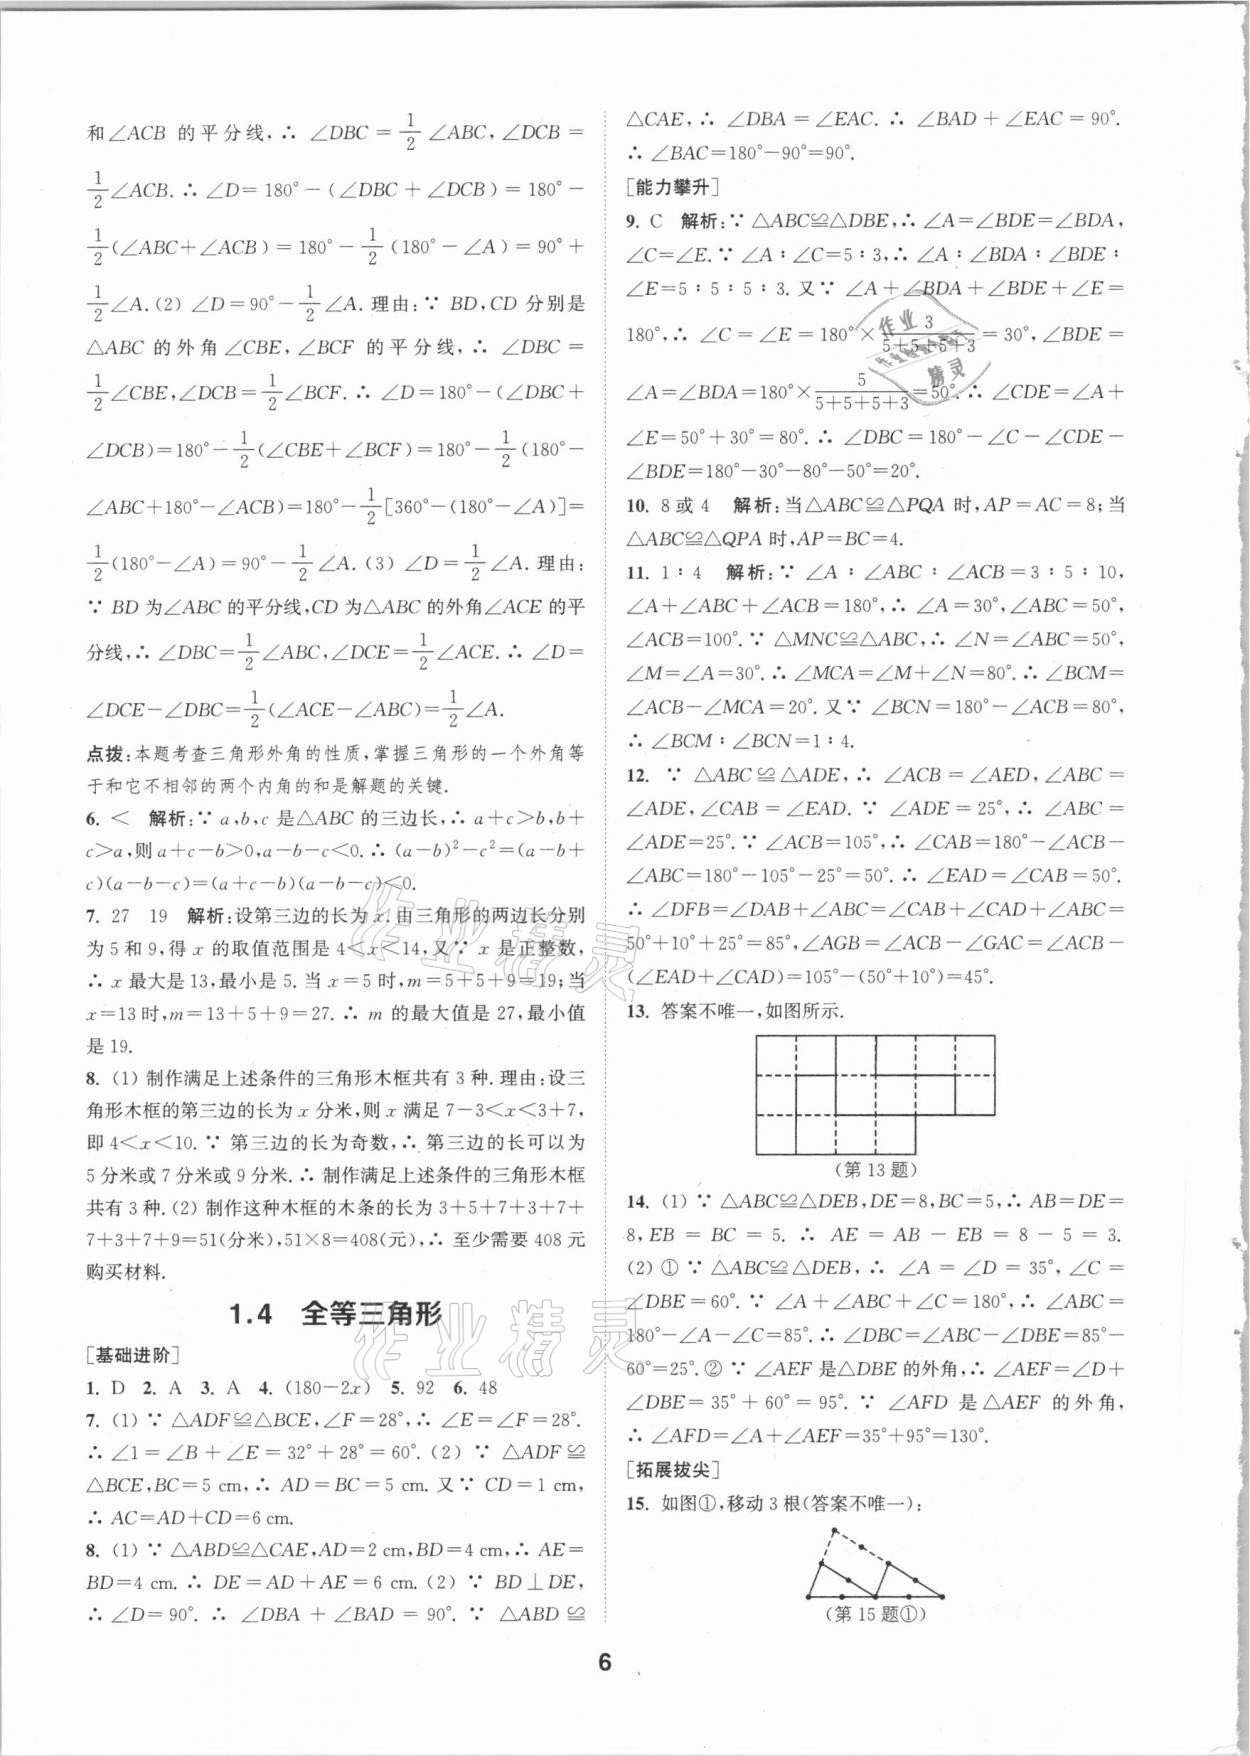 和∠ACB 的平分线,∴ ∠DBC=1/2∠ABC,∠DCB=
1/2∠ACB.∴ ∠D=180°-(∠DBC+∠DCB)=180°-
1/2(∠ABC+∠ACB)=180°-1/2(180°-∠A)=90°+
1/2∠A.(2) ∠D=90°-1/2∠A.理由:∵ BD,CD 分别是
△ABC 的外角∠CBE,∠BCF 的平分线,∴ ∠DBC=
1/2∠CBE,∠DCB=1/2∠BCF.∴ ∠D=180°-(∠DBC+
∠DCB)=180°-1/2(∠CBE+∠BCF)=180°-1/2(180°-
∠ABC+180°-∠ACB)=180°-1/2[360°-(180°-∠A)]=
1/2(180°-∠A)=90°-1/2∠A.(3) ∠D=1/2∠A.理由:
∵ BD 为∠ABC 的平分线,CD 为△ABC 的外角∠ACE 的平
分线,∴ ∠DBC=1/2∠ABC,∠DCE=1/2∠ACE.∴ ∠D=
∠DCE-∠DBC=1/2(∠ACE-∠ABC)=1/2∠A.
点拨:本题考查三角形外角的性质,掌握三角形的一个外角等
于和它不相邻的两个内角的和是解题的关键.
6. < 解析:∵ a,b,c 是△ABC 的三边长,∴ a+c>b,b+
c>a,则 a+c-b>0,a-b-c<0.∴ (a-b)²-c²=(a-b+
c)(a-b-c)=(a+c-b)(a-b-c)<0.
7. 27 19 解析:设第三边的长为 x.由三角形的两边长分别
为 5 和 9,得 x 的取值范围是 4<x<14,又∵ x 是正整数,
∴ x 最大是 13,最小是 5.当 x=5 时,m=5+5+9=19;当
x=13 时,m=13+5+9=27.∴ m 的最大值是 27,最小值
是 19.
8. (1) 制作满足上述条件的三角形木框共有 3 种.理由:设三
角形木框的第三边的长为 x 分米,则 x 满足 7-3<x<3+7,
即 4<x<10.∵ 第三边的长为奇数,∴ 第三边的长可以为
5 分米或 7 分米或 9 分米.∴ 制作满足上述条件的三角形木框
共有 3 种.(2) 制作这种木框的木条的长为 3+5+7+3+7+
7+3+7+9=51(分米),51×8=408(元),∴ 至少需要 408 元
购买材料.
1.4 全等三角形
[基础进阶]
1. D 2. A 3. A 4. (180-2x) 5. 92 6. 48
7. (1) ∵ △ADF≌△BCE,∠F=28°,∴ ∠E=∠F=28°.
∴ ∠1=∠B+∠E=32°+28°=60°.(2) ∵ △ADF≌
△BCE,BC=5 cm,∴ AD=BC=5 cm.又∵ CD=1 cm,
∴ AC=AD+CD=6 cm.
8. (1) ∵ △ABD≌△CAE,AD=2 cm,BD=4 cm,∴ AE=
BD=4 cm.∴ DE=AD+AE=6 cm.(2) ∵ BD⊥DE,
∴ ∠D=90°.∴ ∠DBA+∠BAD=90°.∵ △ABD≌
△CAE,∴ ∠DBA=∠EAC.∴ ∠BAD+∠EAC=90°.
∴ ∠BAC=180°-90°=90°.
[能力攀升]
9. C 解析:∵ △ABC≌△DBE,∴ ∠A=∠BDE=∠BDA,
∠C=∠E.∵ ∠A∶∠C=5∶3,∴ ∠A∶∠BDA∶∠BDE∶
∠E=5∶5∶5∶3.又∵ ∠A+∠BDA+∠BDE+∠E=
180°,∴ ∠C=∠E=180°×3/(5+5+5+3)=30°,∠BDE=
∠A=∠BDA=180°×5/(5+5+5+3)=50°.∴ ∠CDE=∠A+
∠E=50°+30°=80°.∴ ∠DBC=180°-∠C-∠CDE-
∠BDE=180°-30°-80°-50°=20°.
10. 8 或 4 解析:当△ABC≌△PQA 时,AP=AC=8;当
△ABC≌△QPA 时,AP=BC=4.
11. 1∶4 解析:∵ ∠A∶∠ABC∶∠ACB=3∶5∶10,
∠A+∠ABC+∠ACB=180°,∴ ∠A=30°,∠ABC=50°,
∠ACB=100°.∵ △MNC≌△ABC,∴ ∠N=∠ABC=50°,
∠M=∠A=30°.∴ ∠MCA=∠M+∠N=80°.∴ ∠BCM=
∠ACB-∠MCA=20°.又∵ ∠BCN=180°-∠ACB=80°,
∴ ∠BCM∶∠BCN=1∶4.
12. ∵ △ABC≌△ADE,∴ ∠ACB=∠AED,∠ABC=
∠ADE,∠CAB=∠EAD.∵ ∠ADE=25°,∴ ∠ABC=
∠ADE=25°.∵ ∠ACB=105°,∴ ∠CAB=180°-∠ACB-
∠ABC=180°-105°-25°=50°.∴ ∠EAD=∠CAB=50°.
∴ ∠DFB=∠DAB+∠ABC=∠CAB+∠CAD+∠ABC=
50°+10°+25°=85°,∠AGB=∠ACB-∠GAC=∠ACB-
(∠EAD+∠CAD)=105°-(50°+10°)=45°.
13. 答案不唯一,如图所示.
(第 13 题)
14. (1) ∵ △ABC≌△DEB,DE=8,BC=5,∴ AB=DE=
8,EB=BC=5.∴ AE=AB-EB=8-5=3.
(2) ① ∵ △ABC≌△DEB,∴ ∠A=∠D=35°,∠C=
∠DBE=60°.∵ ∠A+∠ABC+∠C=180°,∴ ∠ABC=
180°-∠A-∠C=85°.∴ ∠DBC=∠ABC-∠DBE=85°-
60°=25°.② ∵ ∠AEF 是△DBE 的外角,∴ ∠AEF=∠D+
∠DBE=35°+60°=95°.∵ ∠AFD 是△AEF 的外角,
∴ ∠AFD=∠A+∠AEF=35°+95°=130°.
[拓展拔尖]
15. 如图①,移动 3 根(答案不唯一):
(第 15 题①)
6
作业精灵
作业精灵
作业
精灵